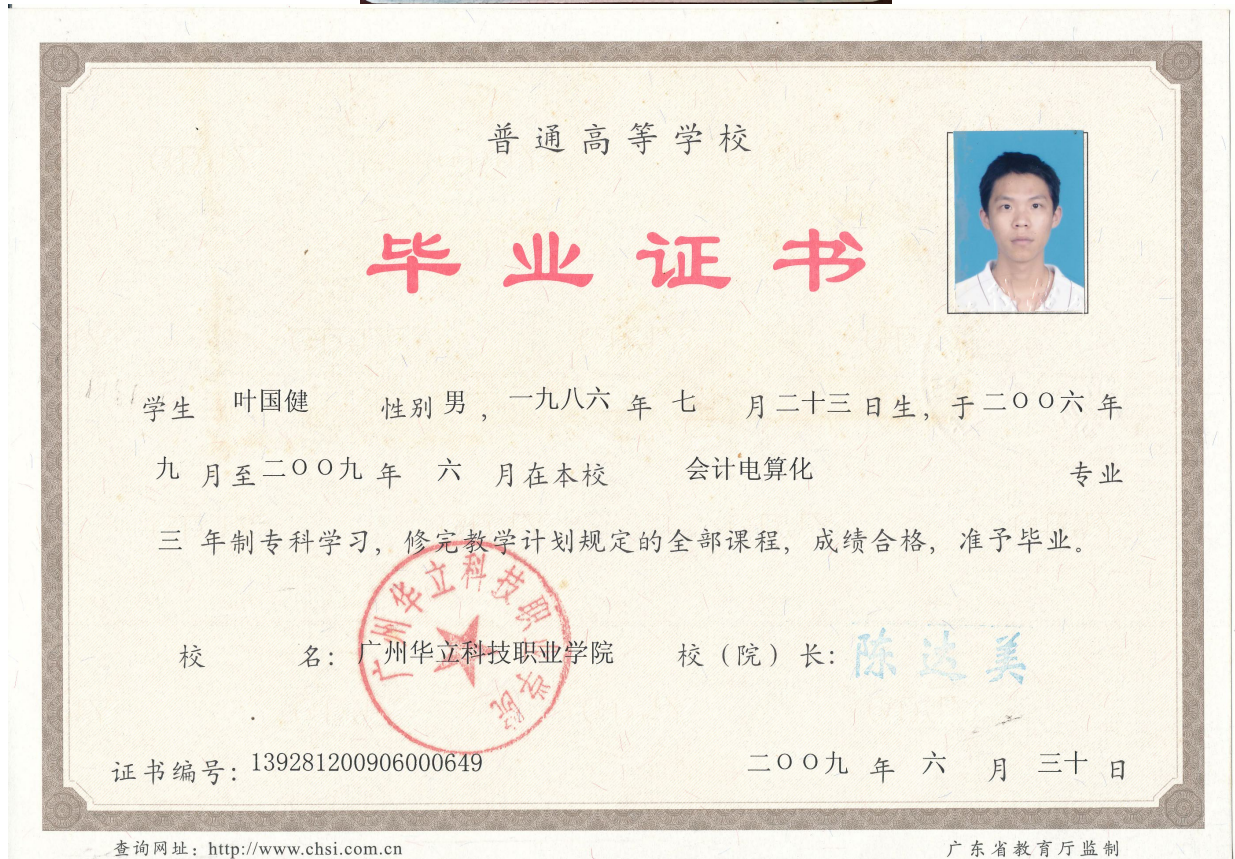 普通高等学校
毕业证书
学生 叶国健 性别 男 , 一九八六 年 七 月 二十三 日生, 于 二〇〇六 年
九 月至 二〇〇九 年 六 月在本校 会计电算化 专业
三 年制专科学习, 修完教学计划规定的全部课程, 成绩合格, 准予毕业。
广州华立科技职业学院
校 名: 广州华立科技职业学院 校（院）长: 陈达美
证书编号: 139281200906000649 二〇〇九 年 六 月 三十 日
查询网址: http://www.chsi.com.cn 广东省教育厅监制